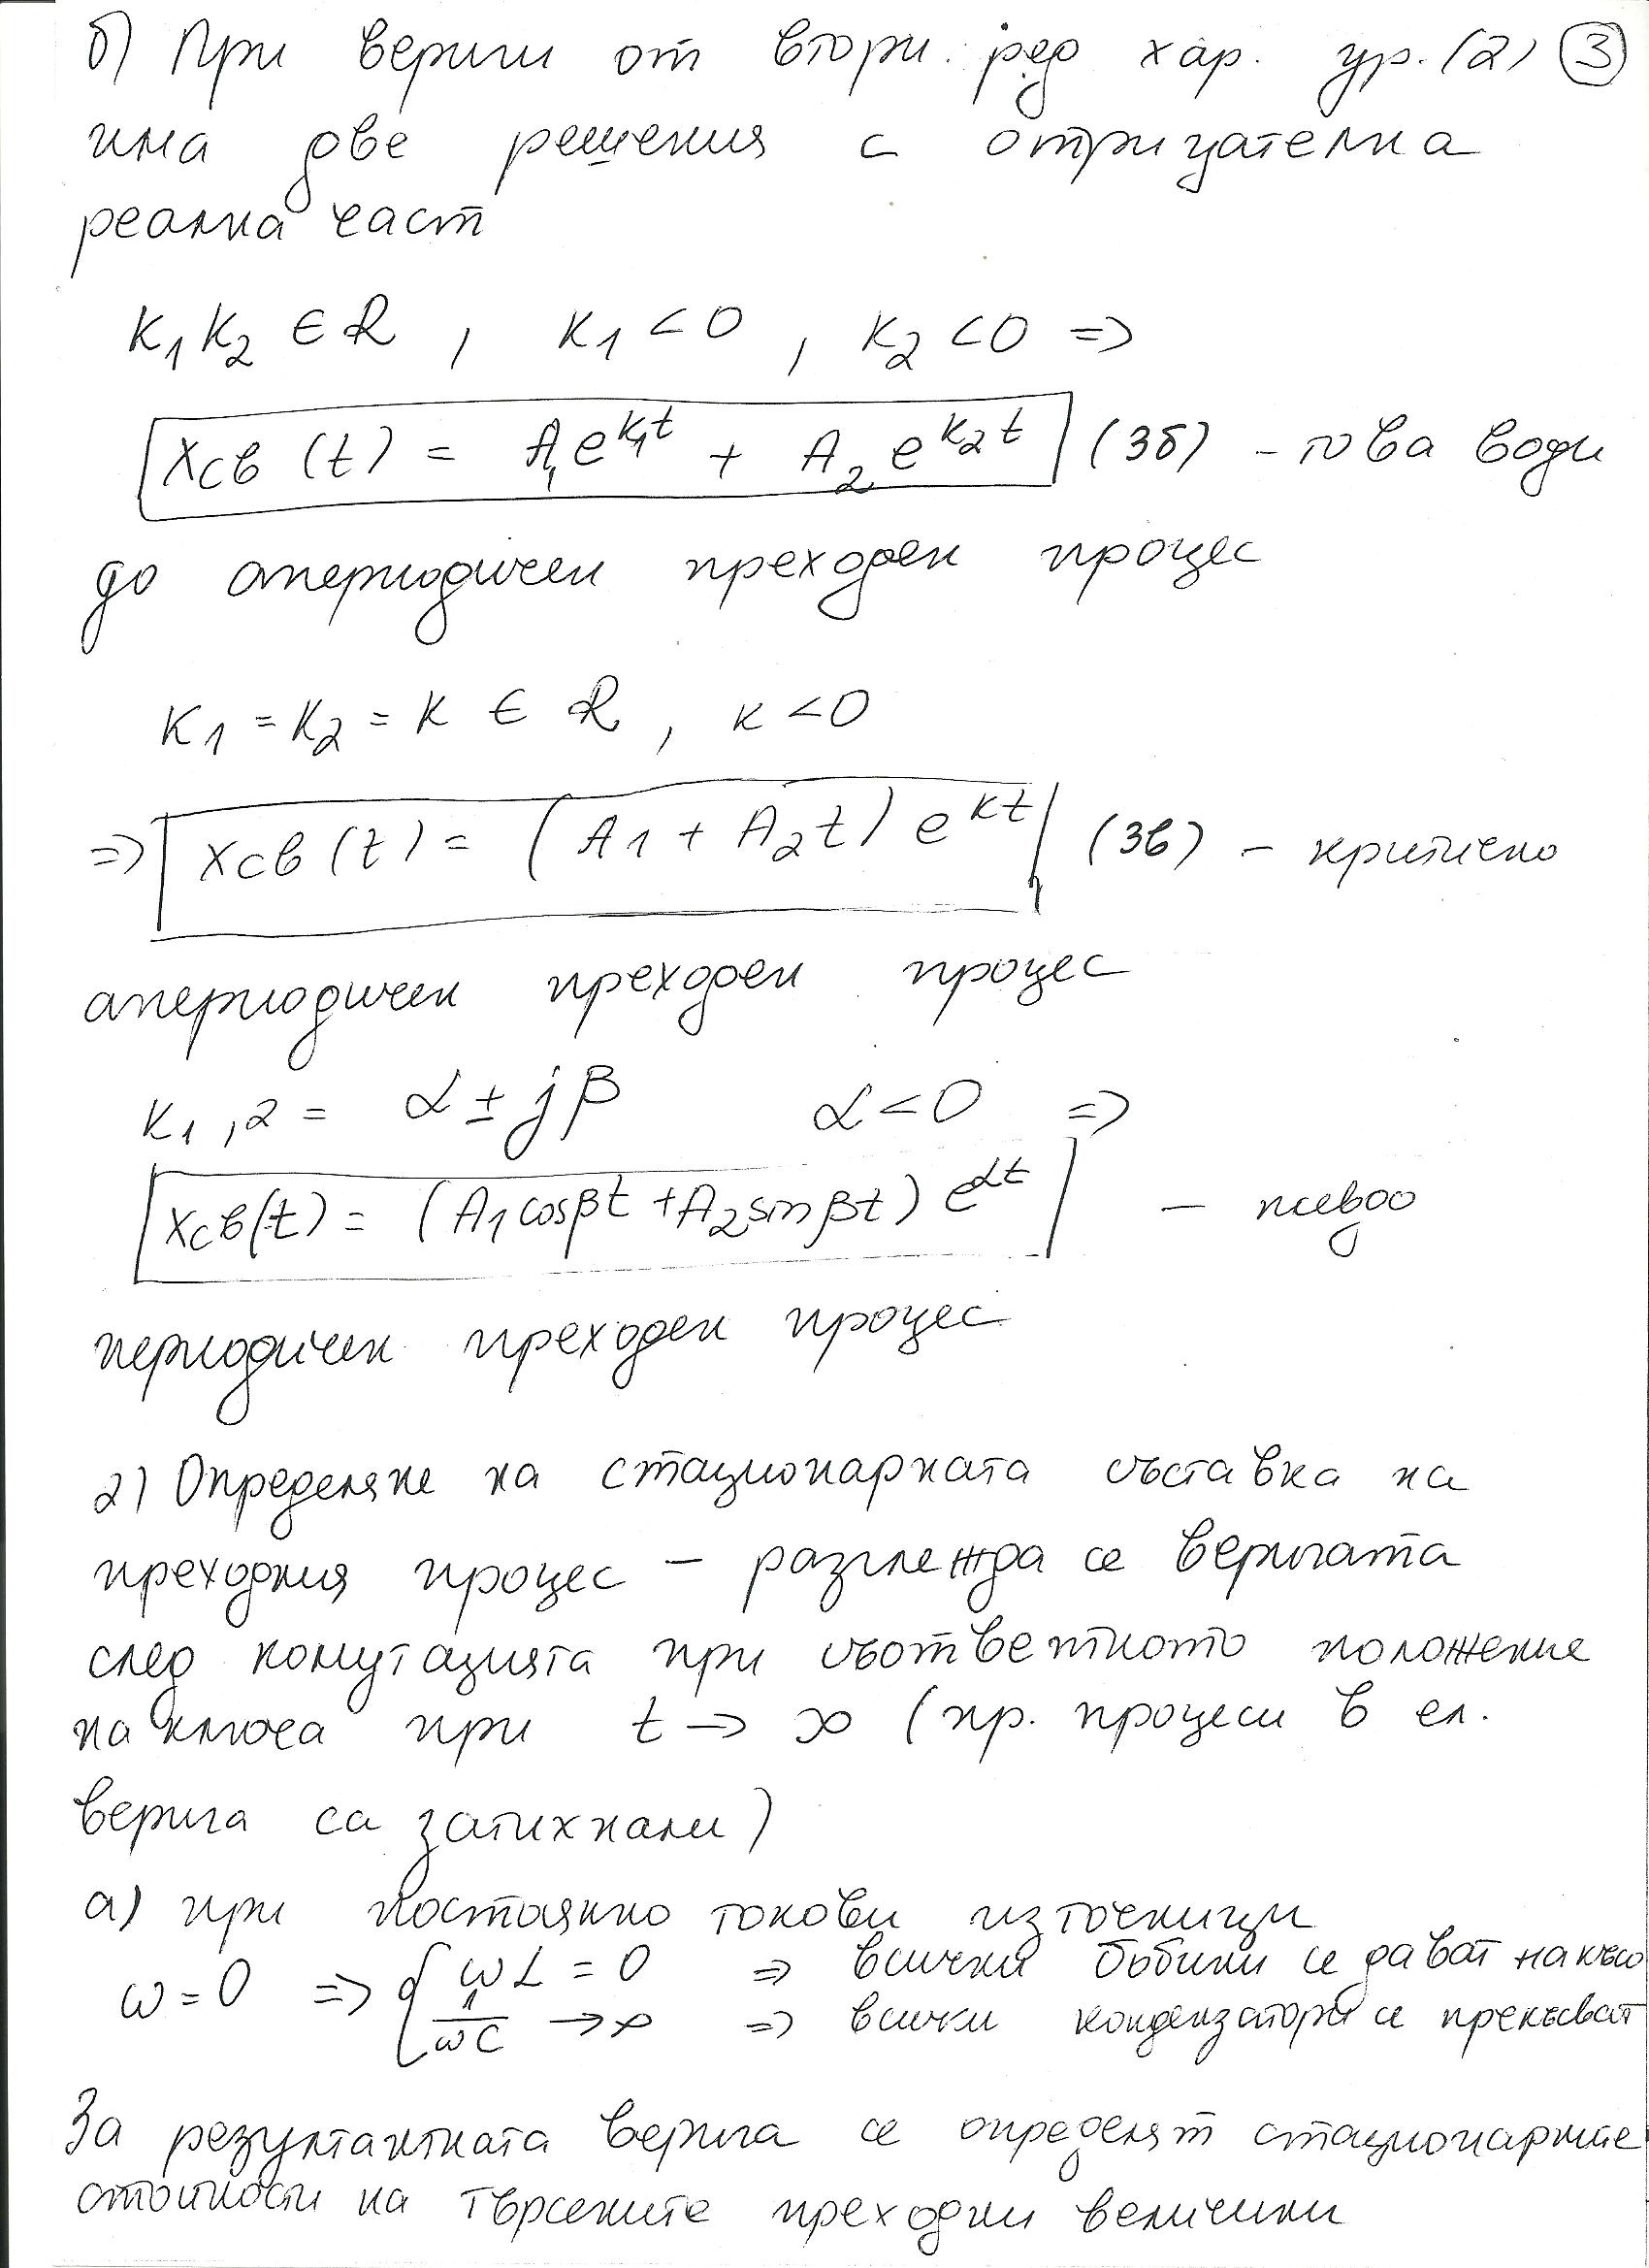 б) При вериги от втори ред хар. ур. (2) (3)
има две решения с отрицателна
реална част
K₁ K₂ ∈ R , K₁ < 0 , K₂ < 0 =>
Xсв (t) = A₁e^(K₁t) + A₂ e^(K₂t) (3б) - това води
до апериодичен преходен процес
K₁ = K₂ = K ∈ R , K < 0
=> Xсв (t) = (A₁ + A₂t) e^(Kt) (3в) - критично
апериодичен преходен процес
K₁,₂ = α ± jβ α < 0 =>
Xсв(t) = (A₁cosβt + A₂sinβt) e^(αt) - псевдо
периодичен преходен процес
2) Определяне на стационарната съставка на
преходния процес - разглежда се веригата
след комутацията при съответното положение
на ключа при t -> ∞ (пр. процеси в ел.
верига са затихнали)
а) при постоянно токови източници
ω = 0 => { ωL = 0 => всички бобини се дават накъсо
1/ωC -> ∞ => всички кондензатори се прекъсват
За резултантната верига се определят стационарните
стойности на търсените преходни величини